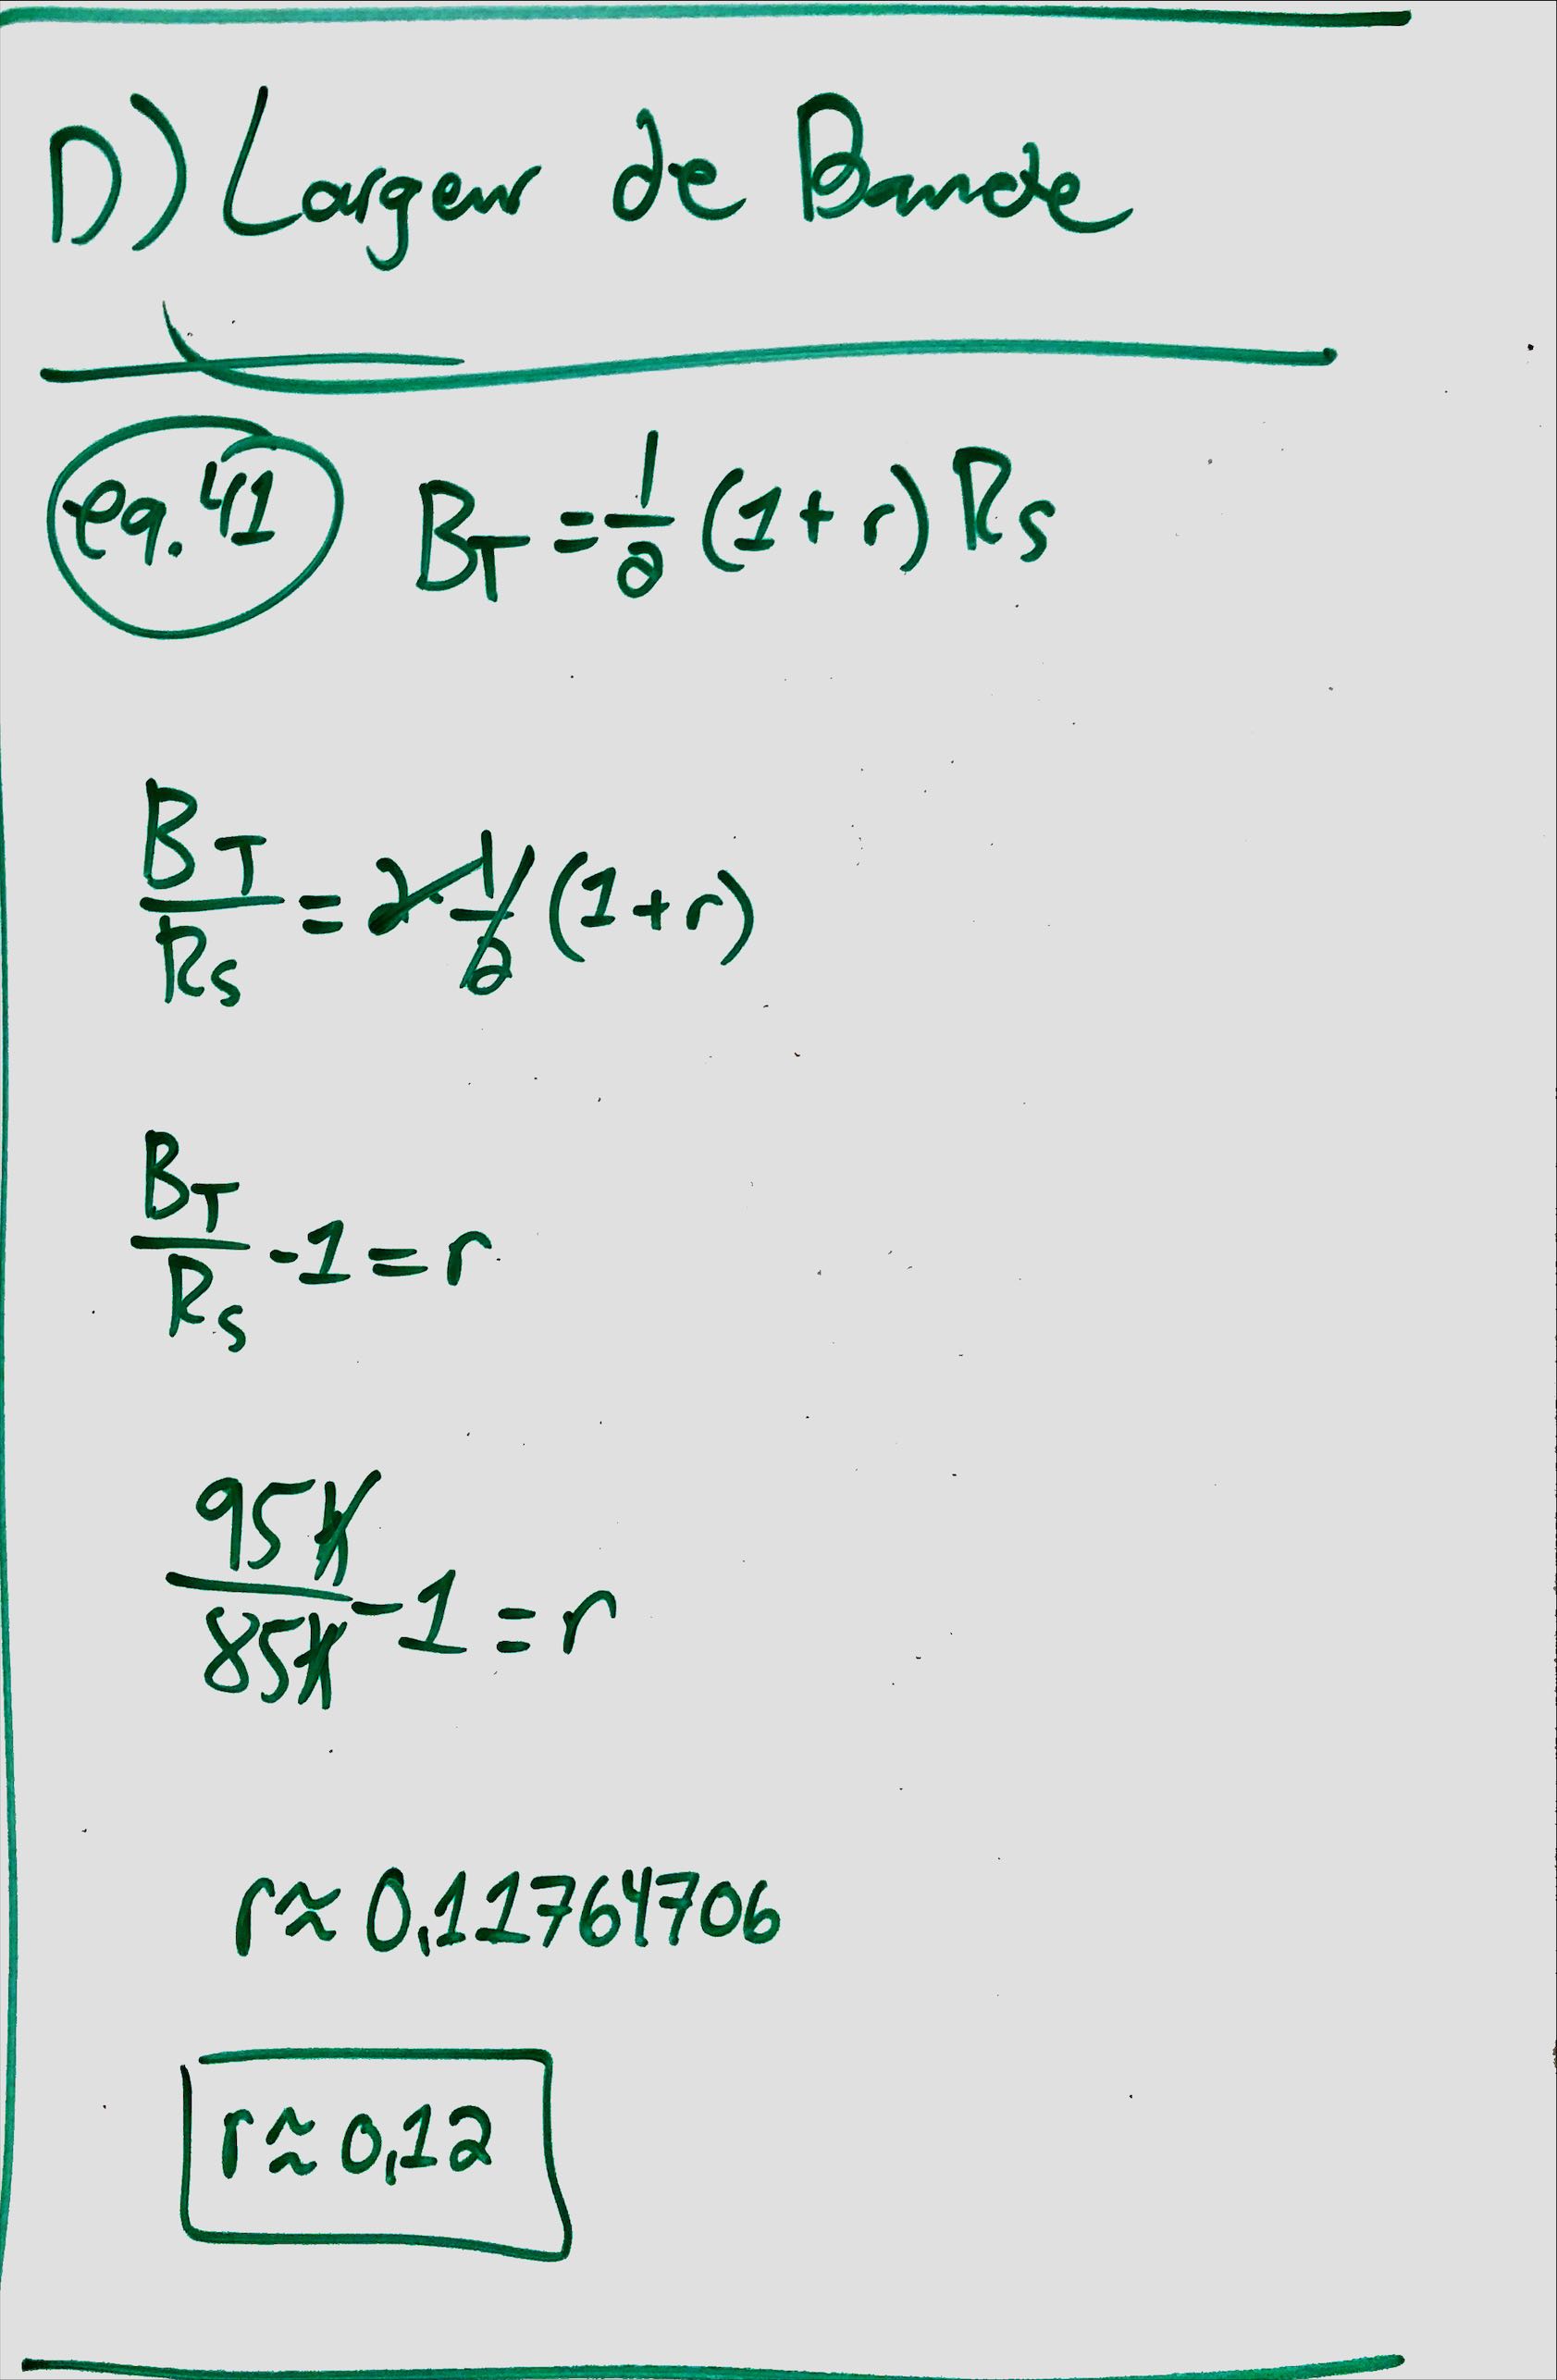 D) Largeur de Bande
eq. 41 B_T = 1/2 (1 + r) R_s
B_T/R_s = 2·1/2 (1 + r)
B_T/R_s - 1 = r
95k/85k - 1 = r
r ≈ 0,11764706
r ≈ 0,12